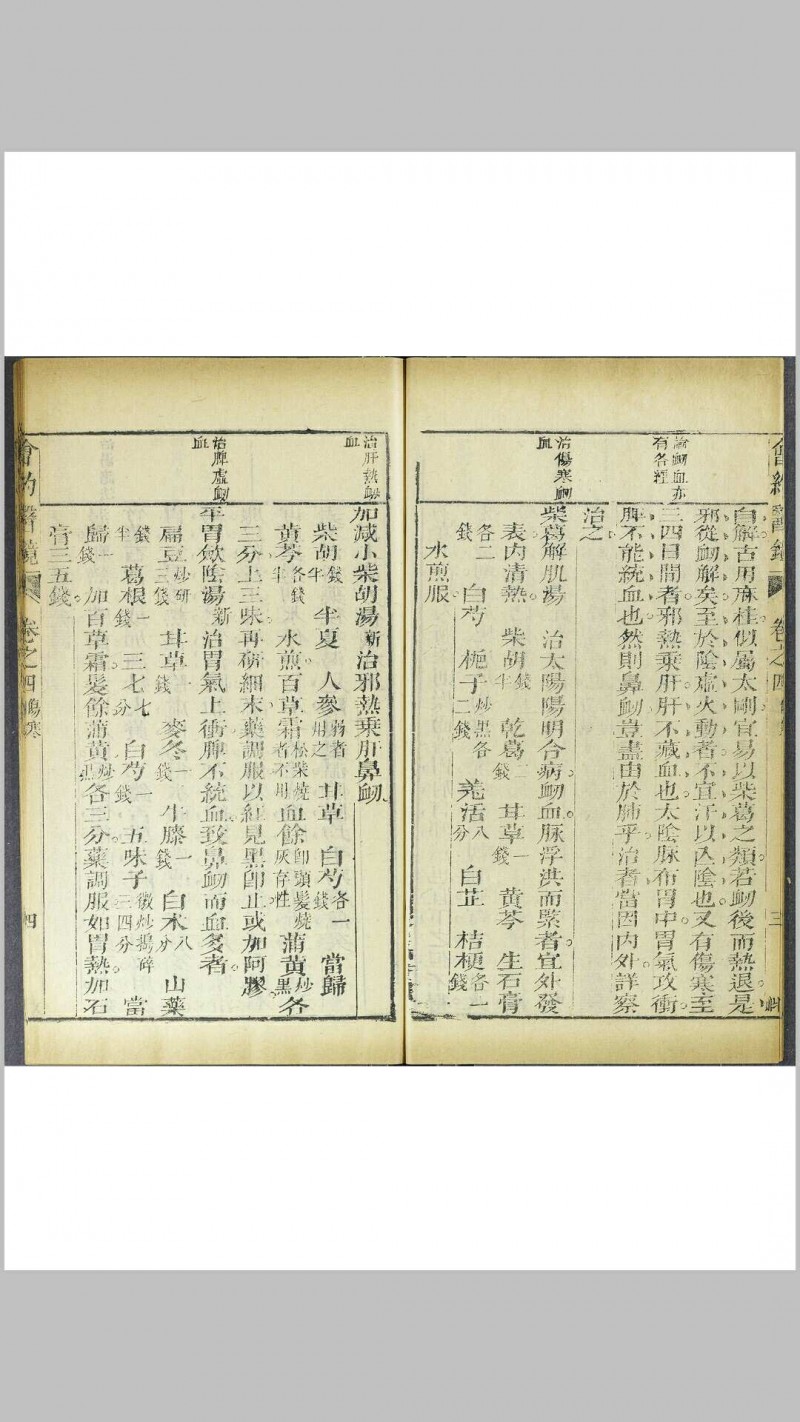 會約醫鏡 卷之四傷寒 三
論衂血亦有各經
自解古用麻桂似屬太剛宜易以柴葛之類若衂後而熱退是
邪從衂解矣至於陰虛火動者不宜汗以亾陰也又有傷寒至
三四日間者邪熱乘肝肝不藏血也太陰脉布胃中胃氣攻衝
脾不能統血也然則鼻衂豈盡由於肺乎治者當因内外詳察
治之
治傷寒衂血
柴葛解肌湯 治太陽陽明合病衂血脉浮洪而緊者宜外發
表内清熱 柴胡錢半 乾葛二錢 甘草一錢 黃芩 生石膏
各二錢 白芍 梔子炒黑各二錢 羌活八分 白芷 桔梗各一錢
水煎服
治肝熱衂血
加減小柴胡湯新 治邪熱乘肝鼻衂
柴胡錢半 半夏 人參弱者用之 甘草 白芍各一錢 當歸
黃芩各錢半 水煎百草霜松柴燒者不用 血餘卽頭髮燒灰存性 蒲黃炒黑各
三分上三味再研細末藥調服以紅見黑卽止或加阿膠
治脾虛衂血
平胃歛陰湯新 治胃氣上衝脾不統血致鼻衂而血多者
扁豆炒研三錢 甘草一錢 麥冬一錢 牛膝一錢 白朮八分 山藥
錢半 葛根一錢 三七七分 白芍一錢 五味子微炒搗碎三四分 當
歸一錢 加百草霜髮餘蒲黃炒黑各三分藥調服如胃熱加石
膏三五錢
會約醫鏡 卷之四傷寒 四